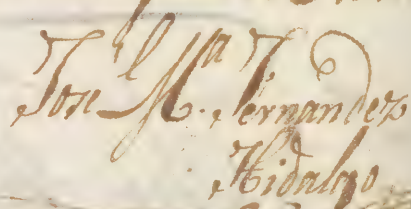 Jose M.ª Fernandez
Hidalgo